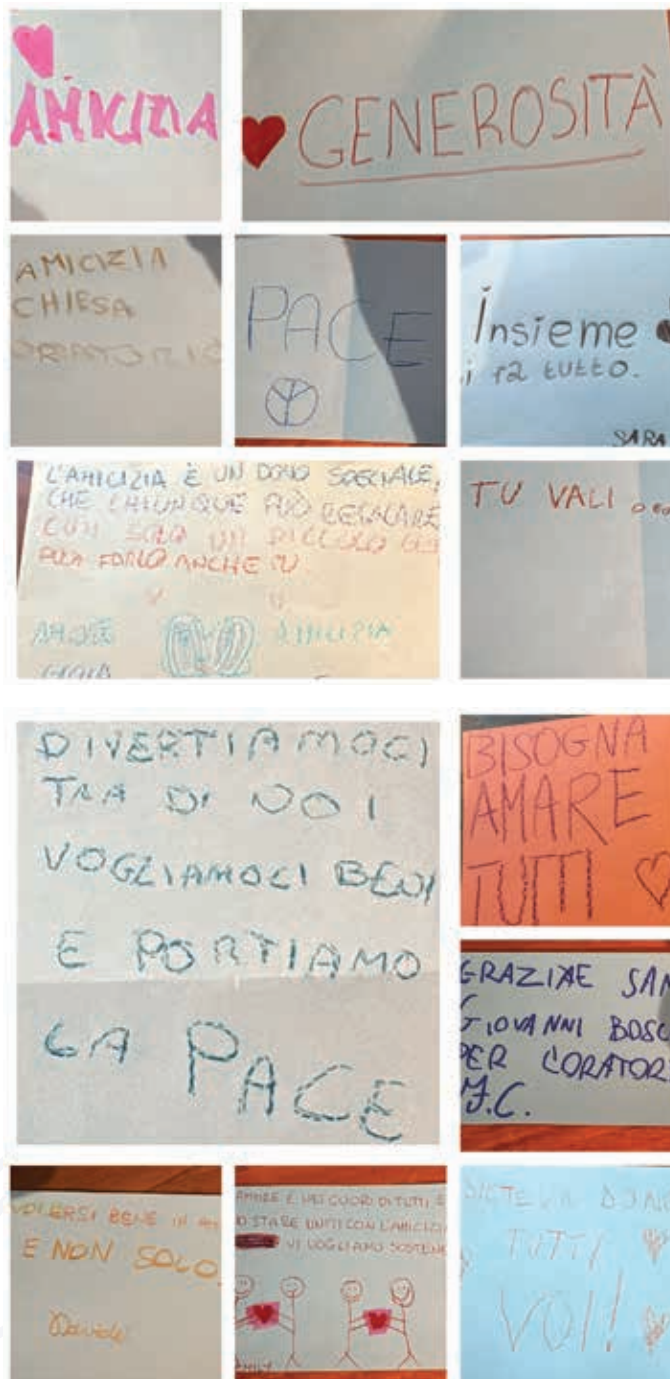 AMICIZIA
GENEROSITÀ
AMICIZIA
CHIESA
ORATORIO
PACE
Insieme
si fa tutto.
SARA
L'AMICIZIA È UN DONO SPECIALE,
CHE CHIUNQUE PUÒ REGALARE
CON SOLO UN PICCOLO
PUOI FARLO ANCHE TU
AMORE AMICIZIA
GIOIA
TU VALI ...
DIVERTIAMOCI
TRA DI NOI
VOGLIAMOCI BENE
E PORTIAMO
LA PACE
BISOGNA
AMARE
TUTTI
GRAZIE SAN
GIOVANNI BOSC
PER L'ORATOR
M.C.
VOLERSI BENE IN
E NON SOLO
Davide
AMORE È NEI CUORI DI TUTTI E
STARE UNITI CON L'AMICIZI
VI VOGLIAMO SOSTENE
SIETE UN DONO
TUTTI
VOI!